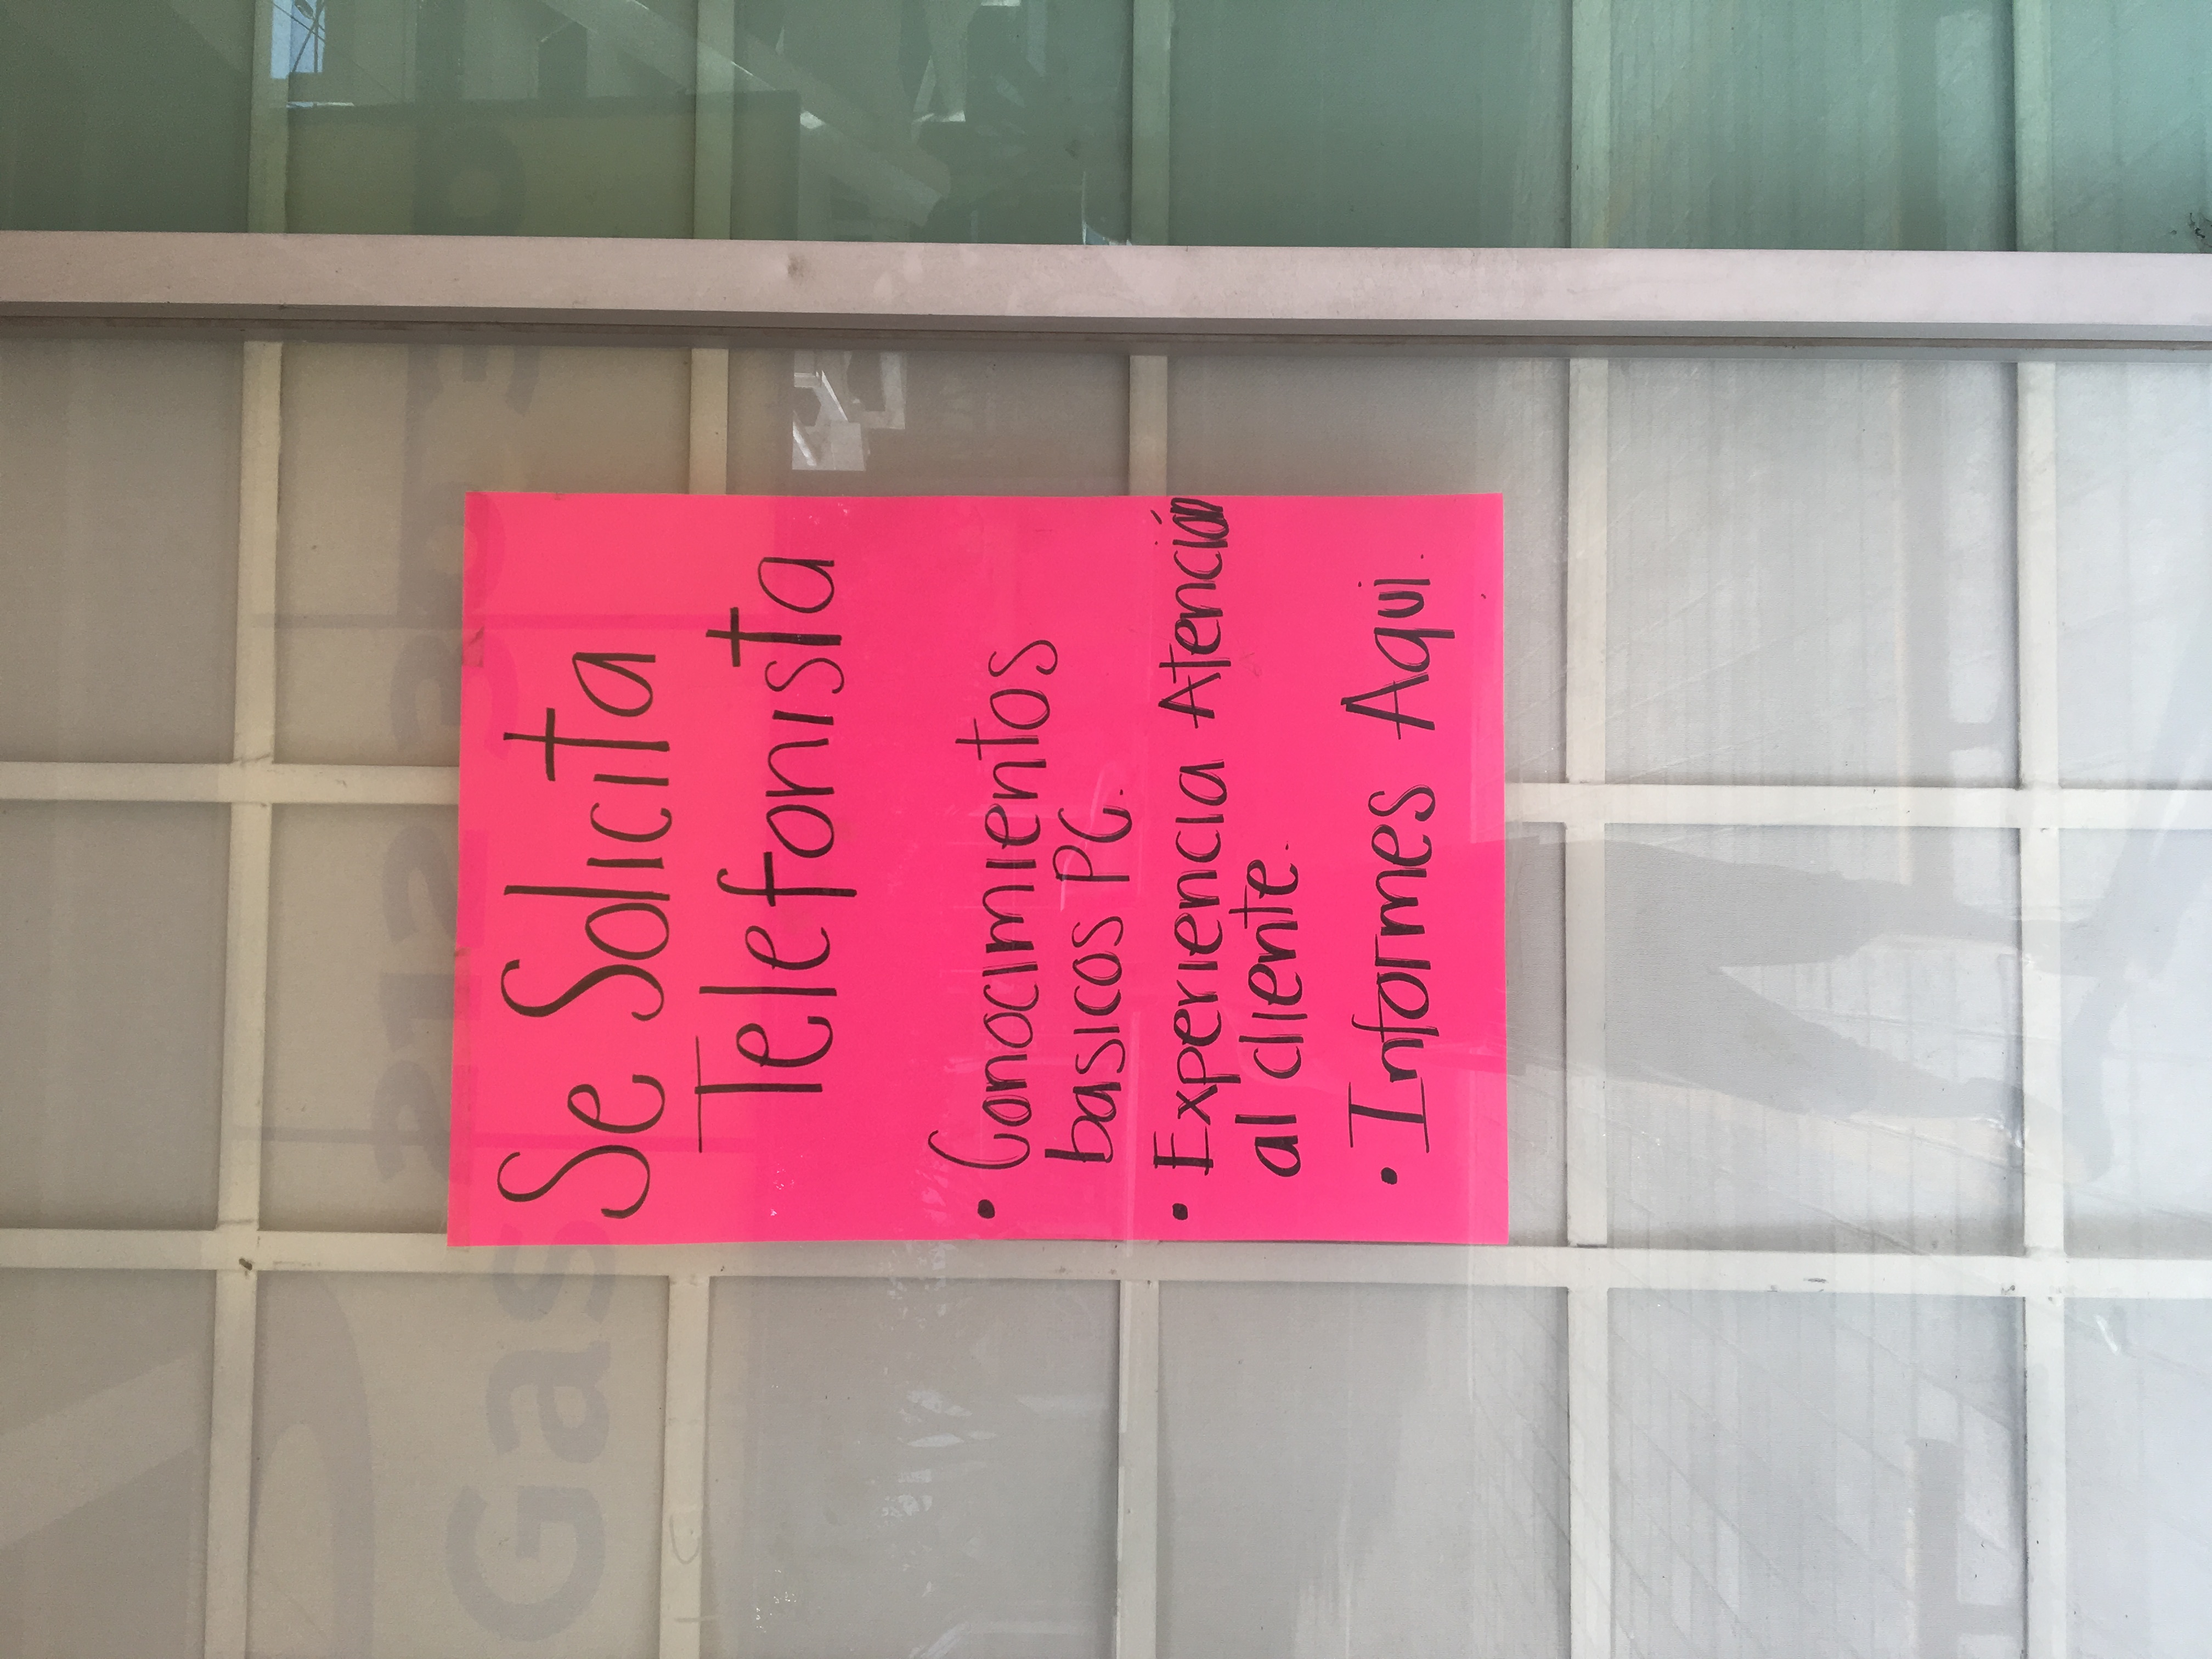 Gas
212 30 30
Se Solicita
Telefonista
• Conocimientos
basicos PC.
• Experiencia Atención
al cliente.
• Informes Aqui.